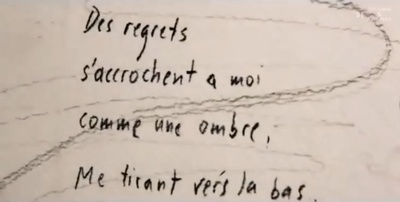 Des regrets
s'accrochent a moi
comme une ombre,
Me tirant vers la bas.